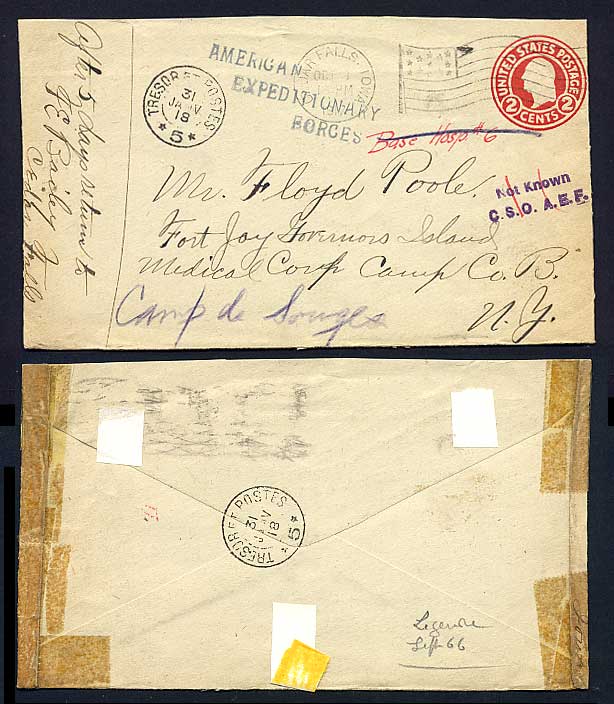 After 5 days return to
F C Bailey
Cedar Falls
AMERICAN
EXPEDITIONARY
FORCES
TRESOR ET POSTES
31
JANV
18
* 5 *
FALLS, IOWA
PM
UNITED STATES POSTAGE
2 CENTS 2
Base Hosp. #6
Not Known
C.S.O. A.E.F.
Mr. Floyd Poole.
Fort Jay Governors Island
Medical Corp Camp Co. B.
N.Y.
Camp de Souges
TRESOR ET POSTES
31
JANV
18
* 5 *
Sept 66